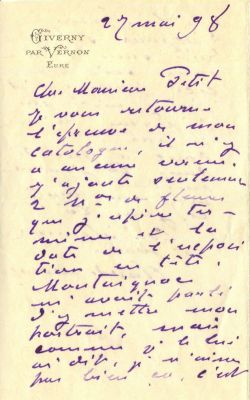 GIVERNY
PAR VERNON
EURE
27 mai 98
Cher Monsieur Petit
je vous retourne
l'épreuve de mon
catalogue, il n'y
a aucune erreur.
j'ajoute seulement
2 Nos de fleurs
que j'espère ter-
miner et la
date de l'exposi
tion en tête.
Montaignac
m'avait parlé
d'y mettre mon
portrait, mais
comme je le lui
ai dit, je n'aime
pas bien ça, c'est